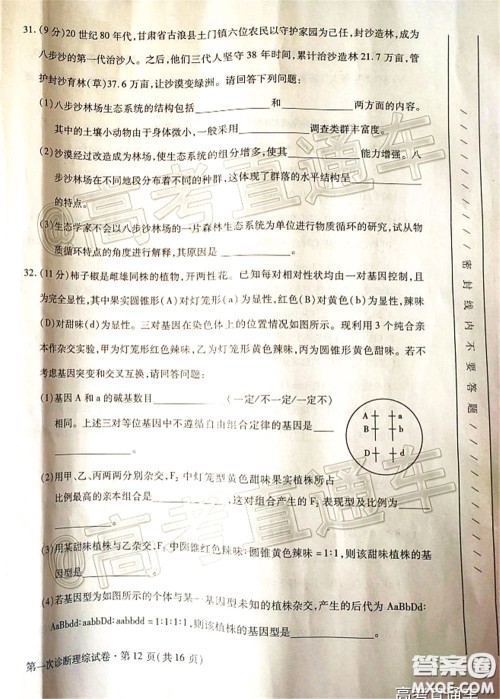 31. (9 分)20 世纪 80 年代，甘肃省古浪县土门镇六位农民以守护家园为己任，封沙造林，成为
八步沙的第一代治沙人。之后，他们三代人坚守 38 年时间，累计治沙造林 21.7 万亩，管
护封沙育林(草)37.6 万亩，让沙漠变绿洲。请回答下列问题：
(1)八步沙林场生态系统的结构包括 和 两方面的内容。
其中的土壤小动物由于身体微小，一般采用 调查类群丰富度。
(2)沙漠经过改造成为林场，使生态系统的组分增多，使其 能力增强。八
步沙林场在不同地段分布着不同的种群，这体现了群落的水平结构呈
的特点。
(3)生态学家不会以八步沙林场的一片森林生态系统为单位进行物质循环的研究，试从物
质循环特点的角度进行解释，其原因是 。
32. (11 分)柿子椒是雌雄同株的植物，开两性花。已知每对相对性状均由一对基因控制，且
为完全显性，其中果实圆锥形(A)对灯笼形(a)为显性，红色(B)对黄色(b)为显性，辣味
(D)对甜味(d)为显性。三对基因在染色体上的位置情况如图所示。现利用 3 个纯合亲
本作杂交实验，甲为灯笼形红色辣味，乙为灯笼形黄色辣味，丙为圆锥形黄色甜味。若不
考虑基因突变和交叉互换，请回答问题：
(1)基因 A 和 a 的碱基数目 (一定/不一定/一定不)
相同。上述三对等位基因中不遵循自由组合定律的基因是
A a
B b
D d
(2)用甲、乙、丙两两分别杂交，F₂ 中灯笼型黄色甜味果实植株所占
比例最高的亲本组合是 ，这对组合产生的 F₂ 表现型及比例为
。
(3)用某甜味植株与乙杂交，F₁ 中圆锥红色辣味：圆锥黄色辣味=1:1，则该甜味植株的基
因型是 。
(4)若基因型为如图所示的个体与某一基因型未知的植株杂交，产生的后代为 AaBbDd:
AaBbdd:aabbDd:aabbdd = 1:1:1:1，则该植株的基因型为 。
第一次诊断理综试卷·第 12 页(共 16 页)
密封线内不要答题
@高考直通车
@高考直通车
高考直通车
答案圈
MXQE.COM